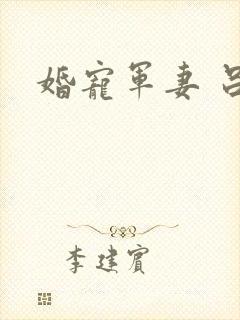 婚寵軍妻 呂
李建賓